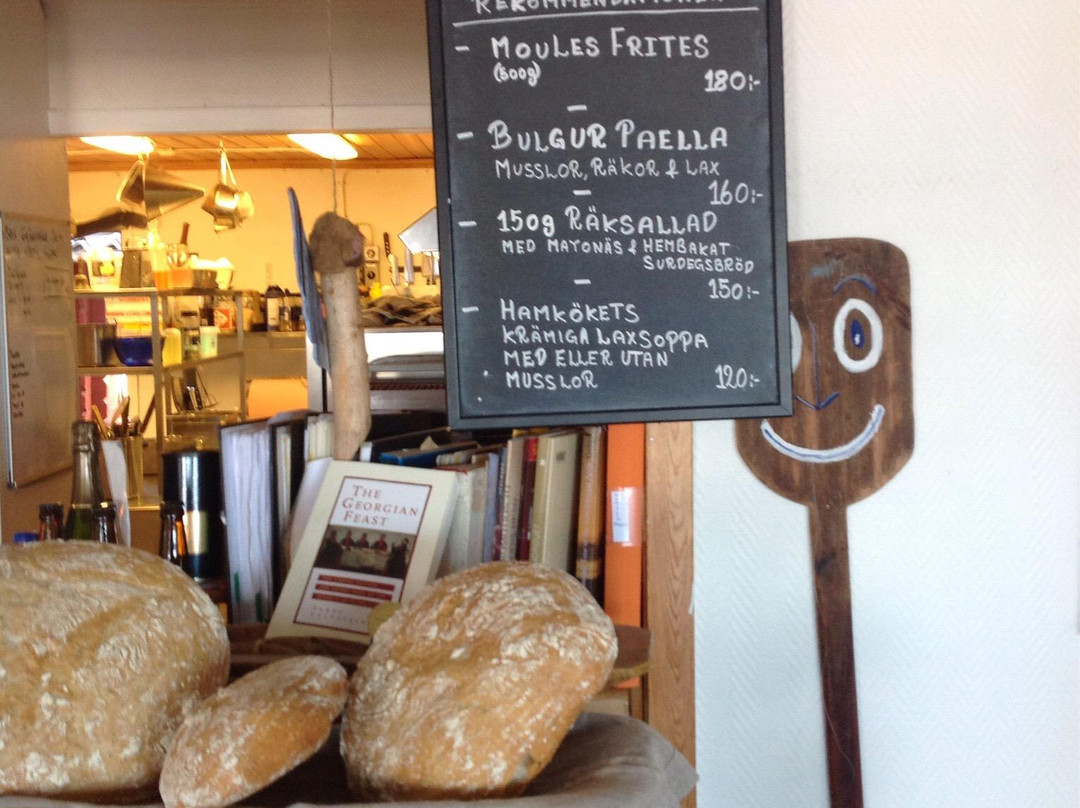 REKOMMENDATIONER
- MOULES FRITES
(500g)
180:-
-
- BULGUR PAELLA
MUSSLOR, RÄKOR & LAX
-
160:-
- 150g RÄKSALLAD
MED MAYONÄS & HEMBAKAT
SURDEGSBRÖD
-
150:-
- HAMKÖKETS
KRÄMIGA LAXSOPPA
MED ELLER UTAN
MUSSLOR
120:-
THE
GEORGIAN
FEAST